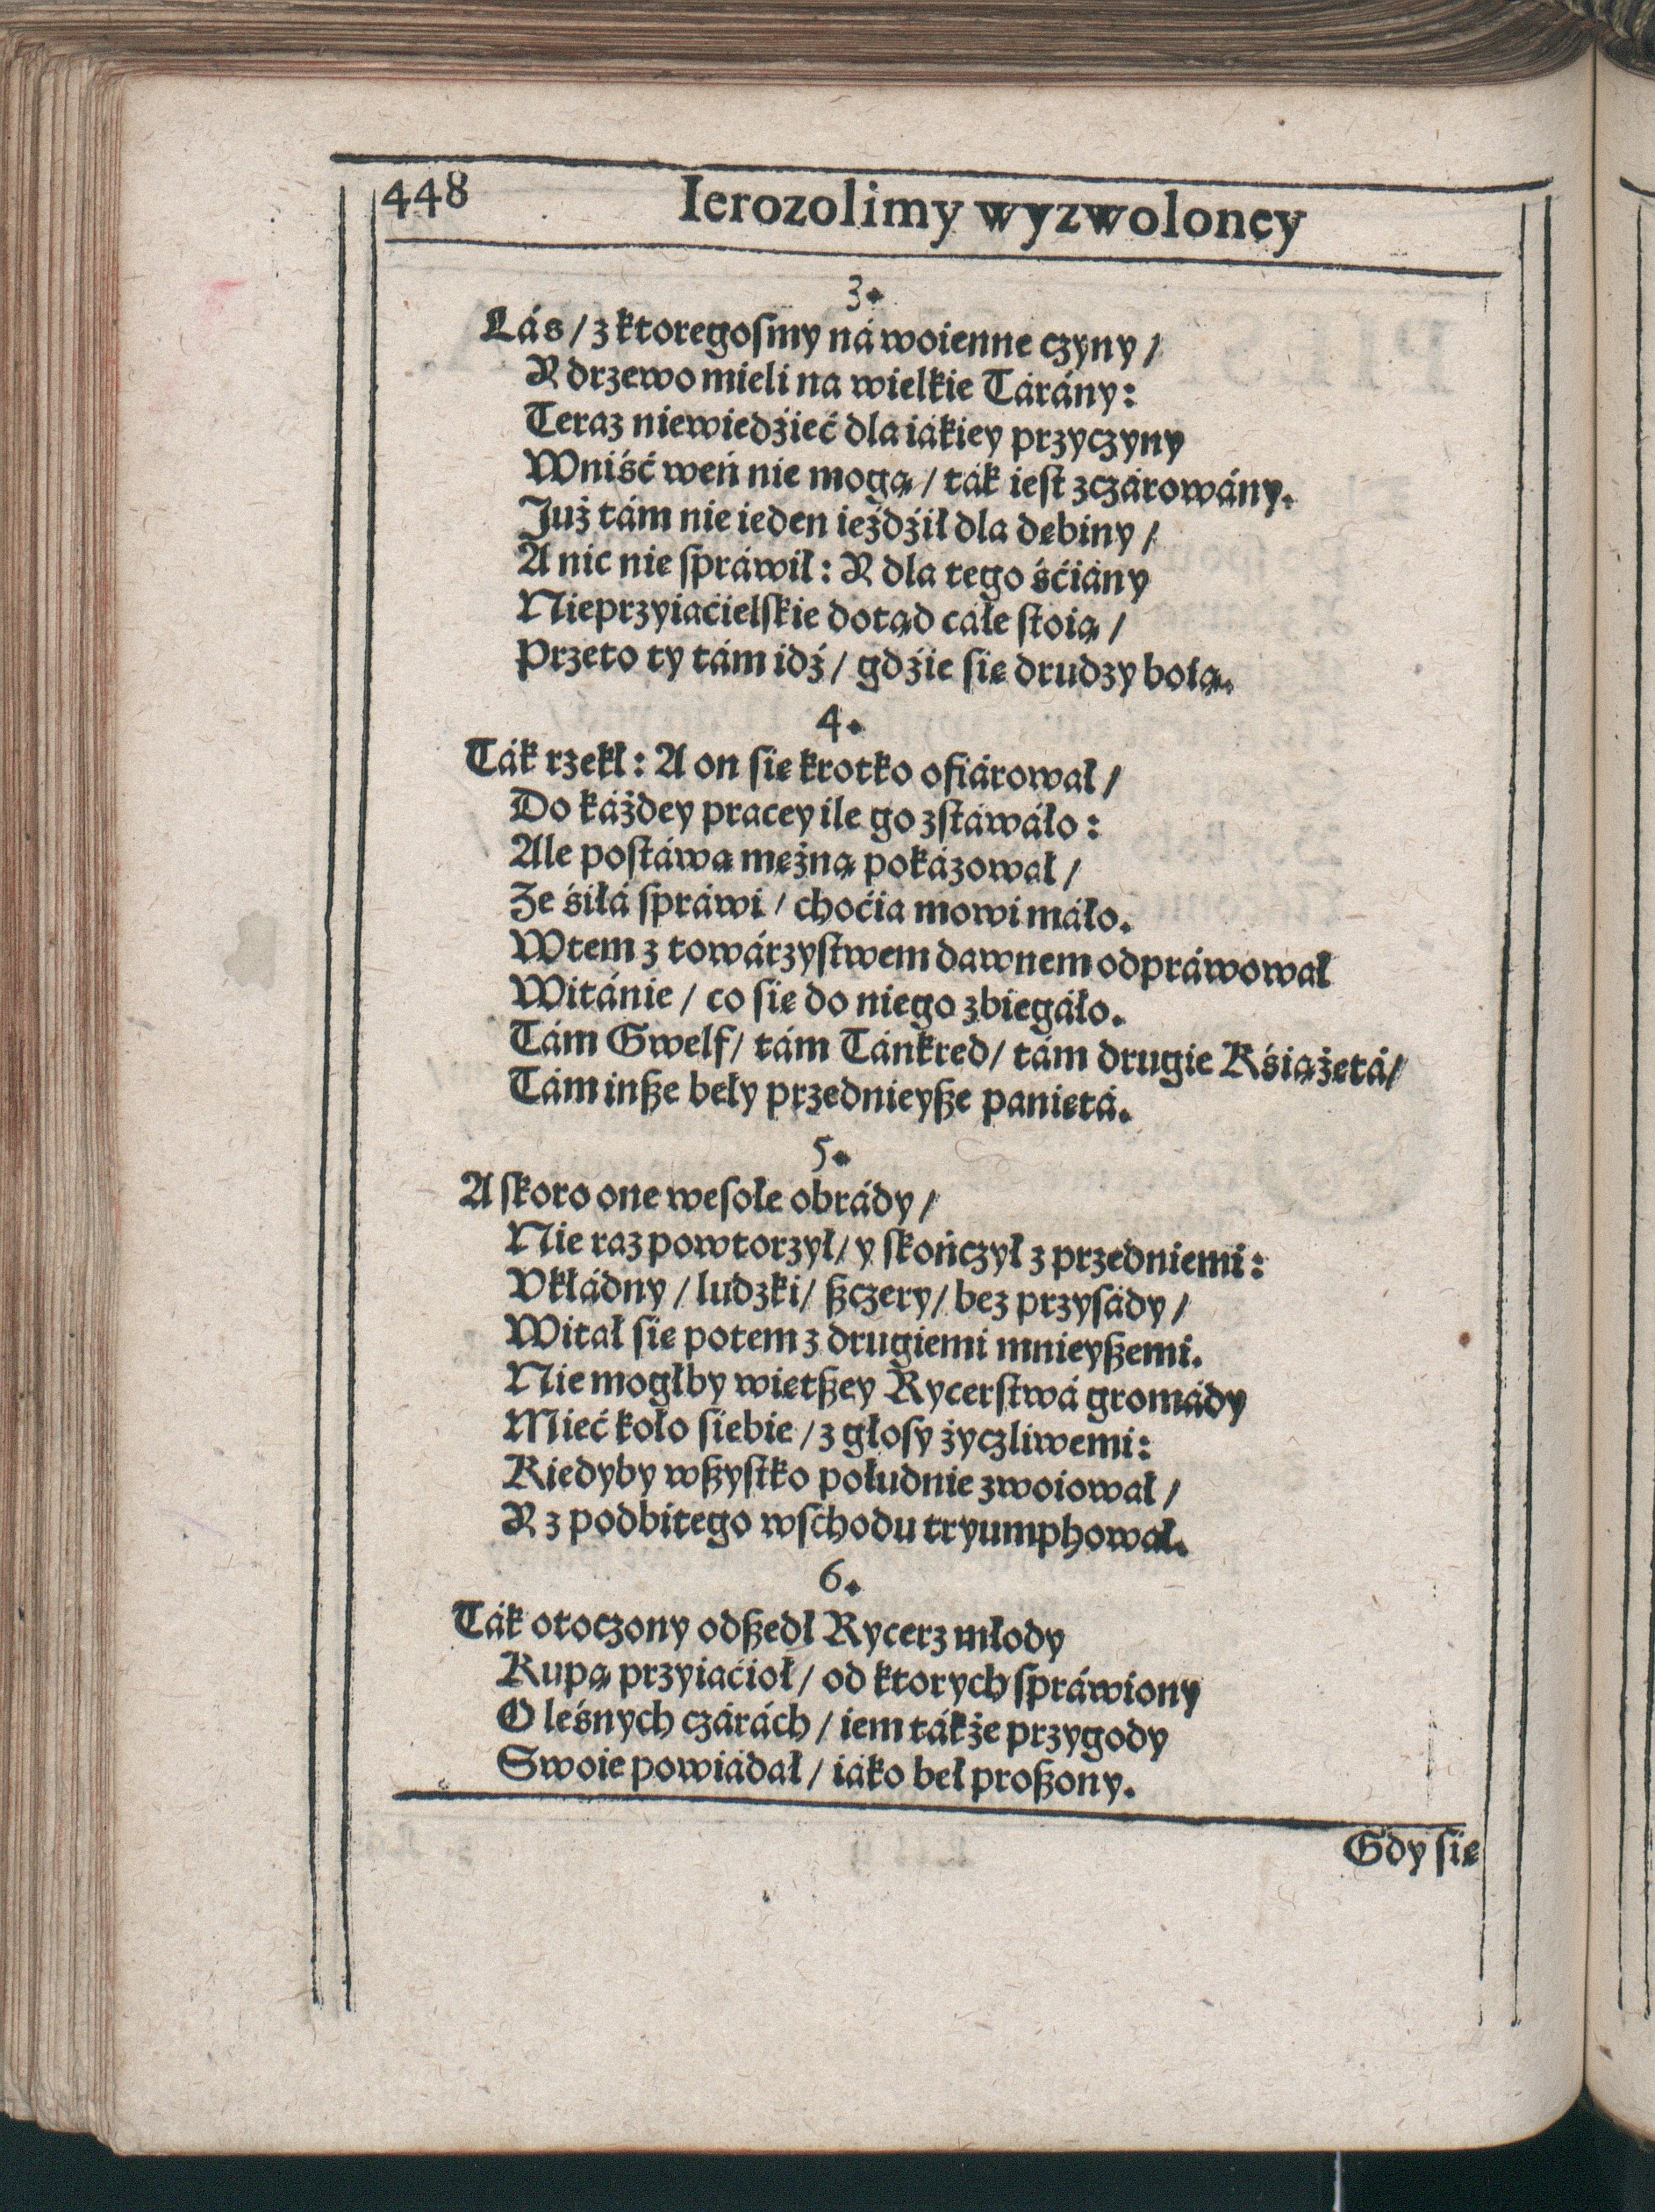 448 Ierozolimy wyzwoloney
3.
Lás / z ktoregosmy ná woienne czyny /
Y drzewo mieli na wielkie Tárány:
Teraz niewiedźieć dla iákiey przyczyny
Wniść weń nie mogą / ták iest zczárowány.
Już tám nie ieden ieźdźił dla dębiny /
A nic nie spráwił: Y dla tego śćiány
Nieprzyiaćielskie dotąd całe stoią /
Przeto ty tám idź / gdźie się drudzy boią.
4.
Ták rzekł: A on się krotko ofiárował /
Do káżdey pracey ile go zstawáło:
Ale postáwą mężną pokázował /
Ze śiłá spráwi / choćia mowi máło.
Wtem z towárzystwem dawnem odpráwował
Witánie / co się do niego zbiegáło.
Tám Gwelf / tám Tánkred / tám drugie Kśiążętá /
Tám insze beły przednieysze paniętá.
5.
A skoro one wesołe obrády /
Nie raz powtorzył / y skończył z przedniemi:
Vkłádny / ludzki / szczery / bez przysády /
Witał się potem z drugiemi mnieyszemi.
Nie mogłby więtszey Rycerstwá gromády
Mieć koło siebie / z głosy życzliwemi:
Kiedyby wszystko południe zwoiował /
Y z podbitego wschodu tryumphował.
6.
Ták otoczony odszedł Rycerz młody
Kupą przyiaćioł / od ktorych spráwiony
O leśnych czárách / iem tákże przygody
Swoie powiádał / iáko beł proszony.
Gdy się